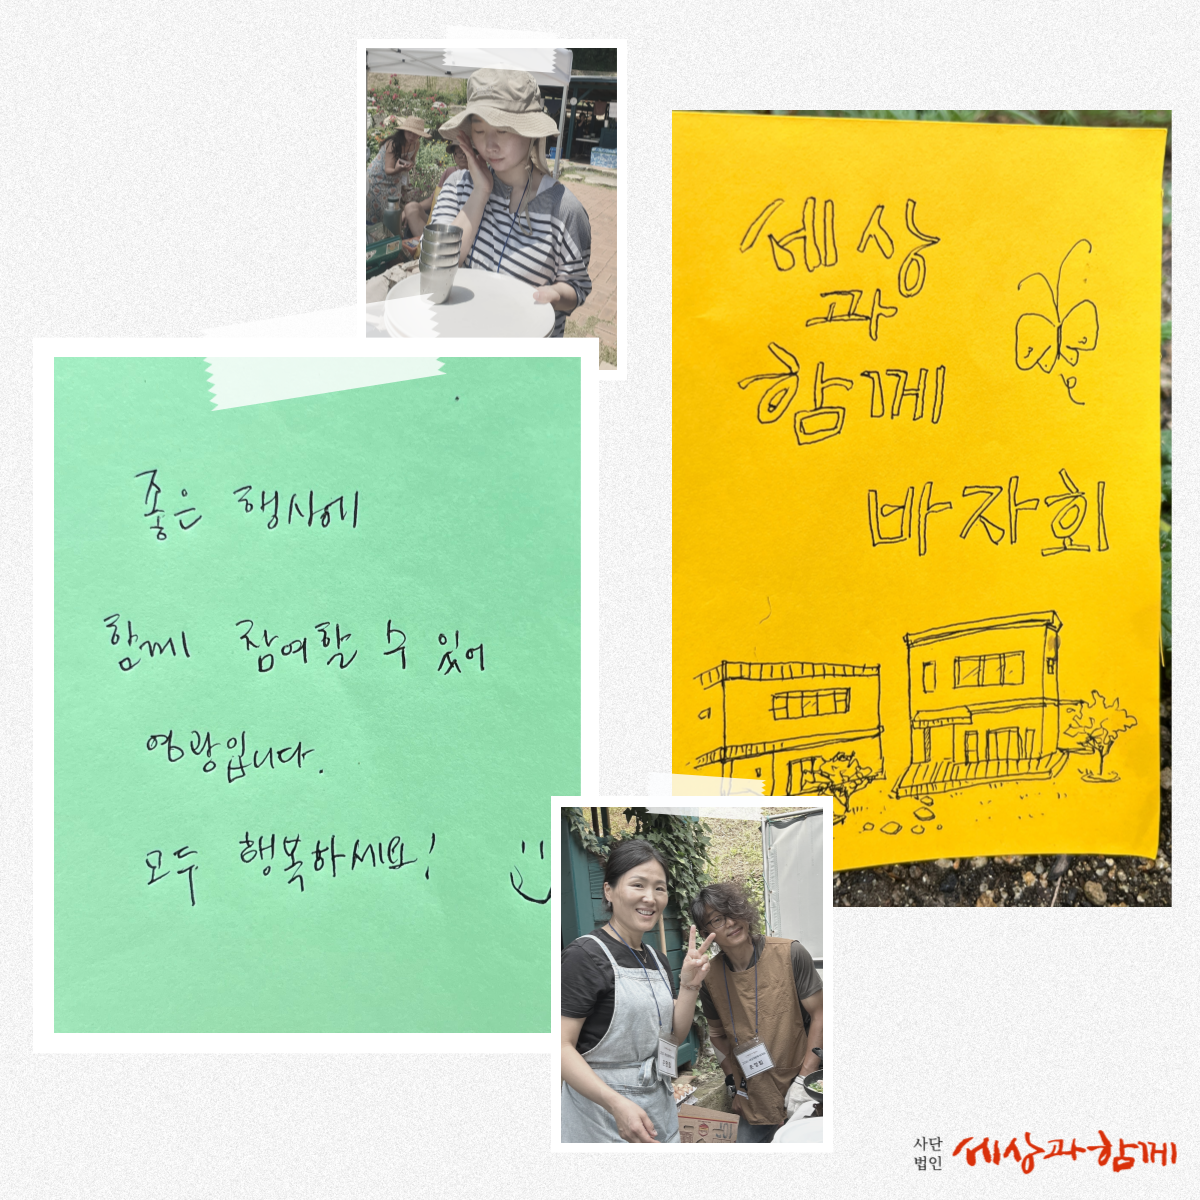 세상
과
함께
바자회
좋은 행사에
함께 참여할 수 있어
영광입니다.
모두 행복하세요!
사단
법인
세상과함께